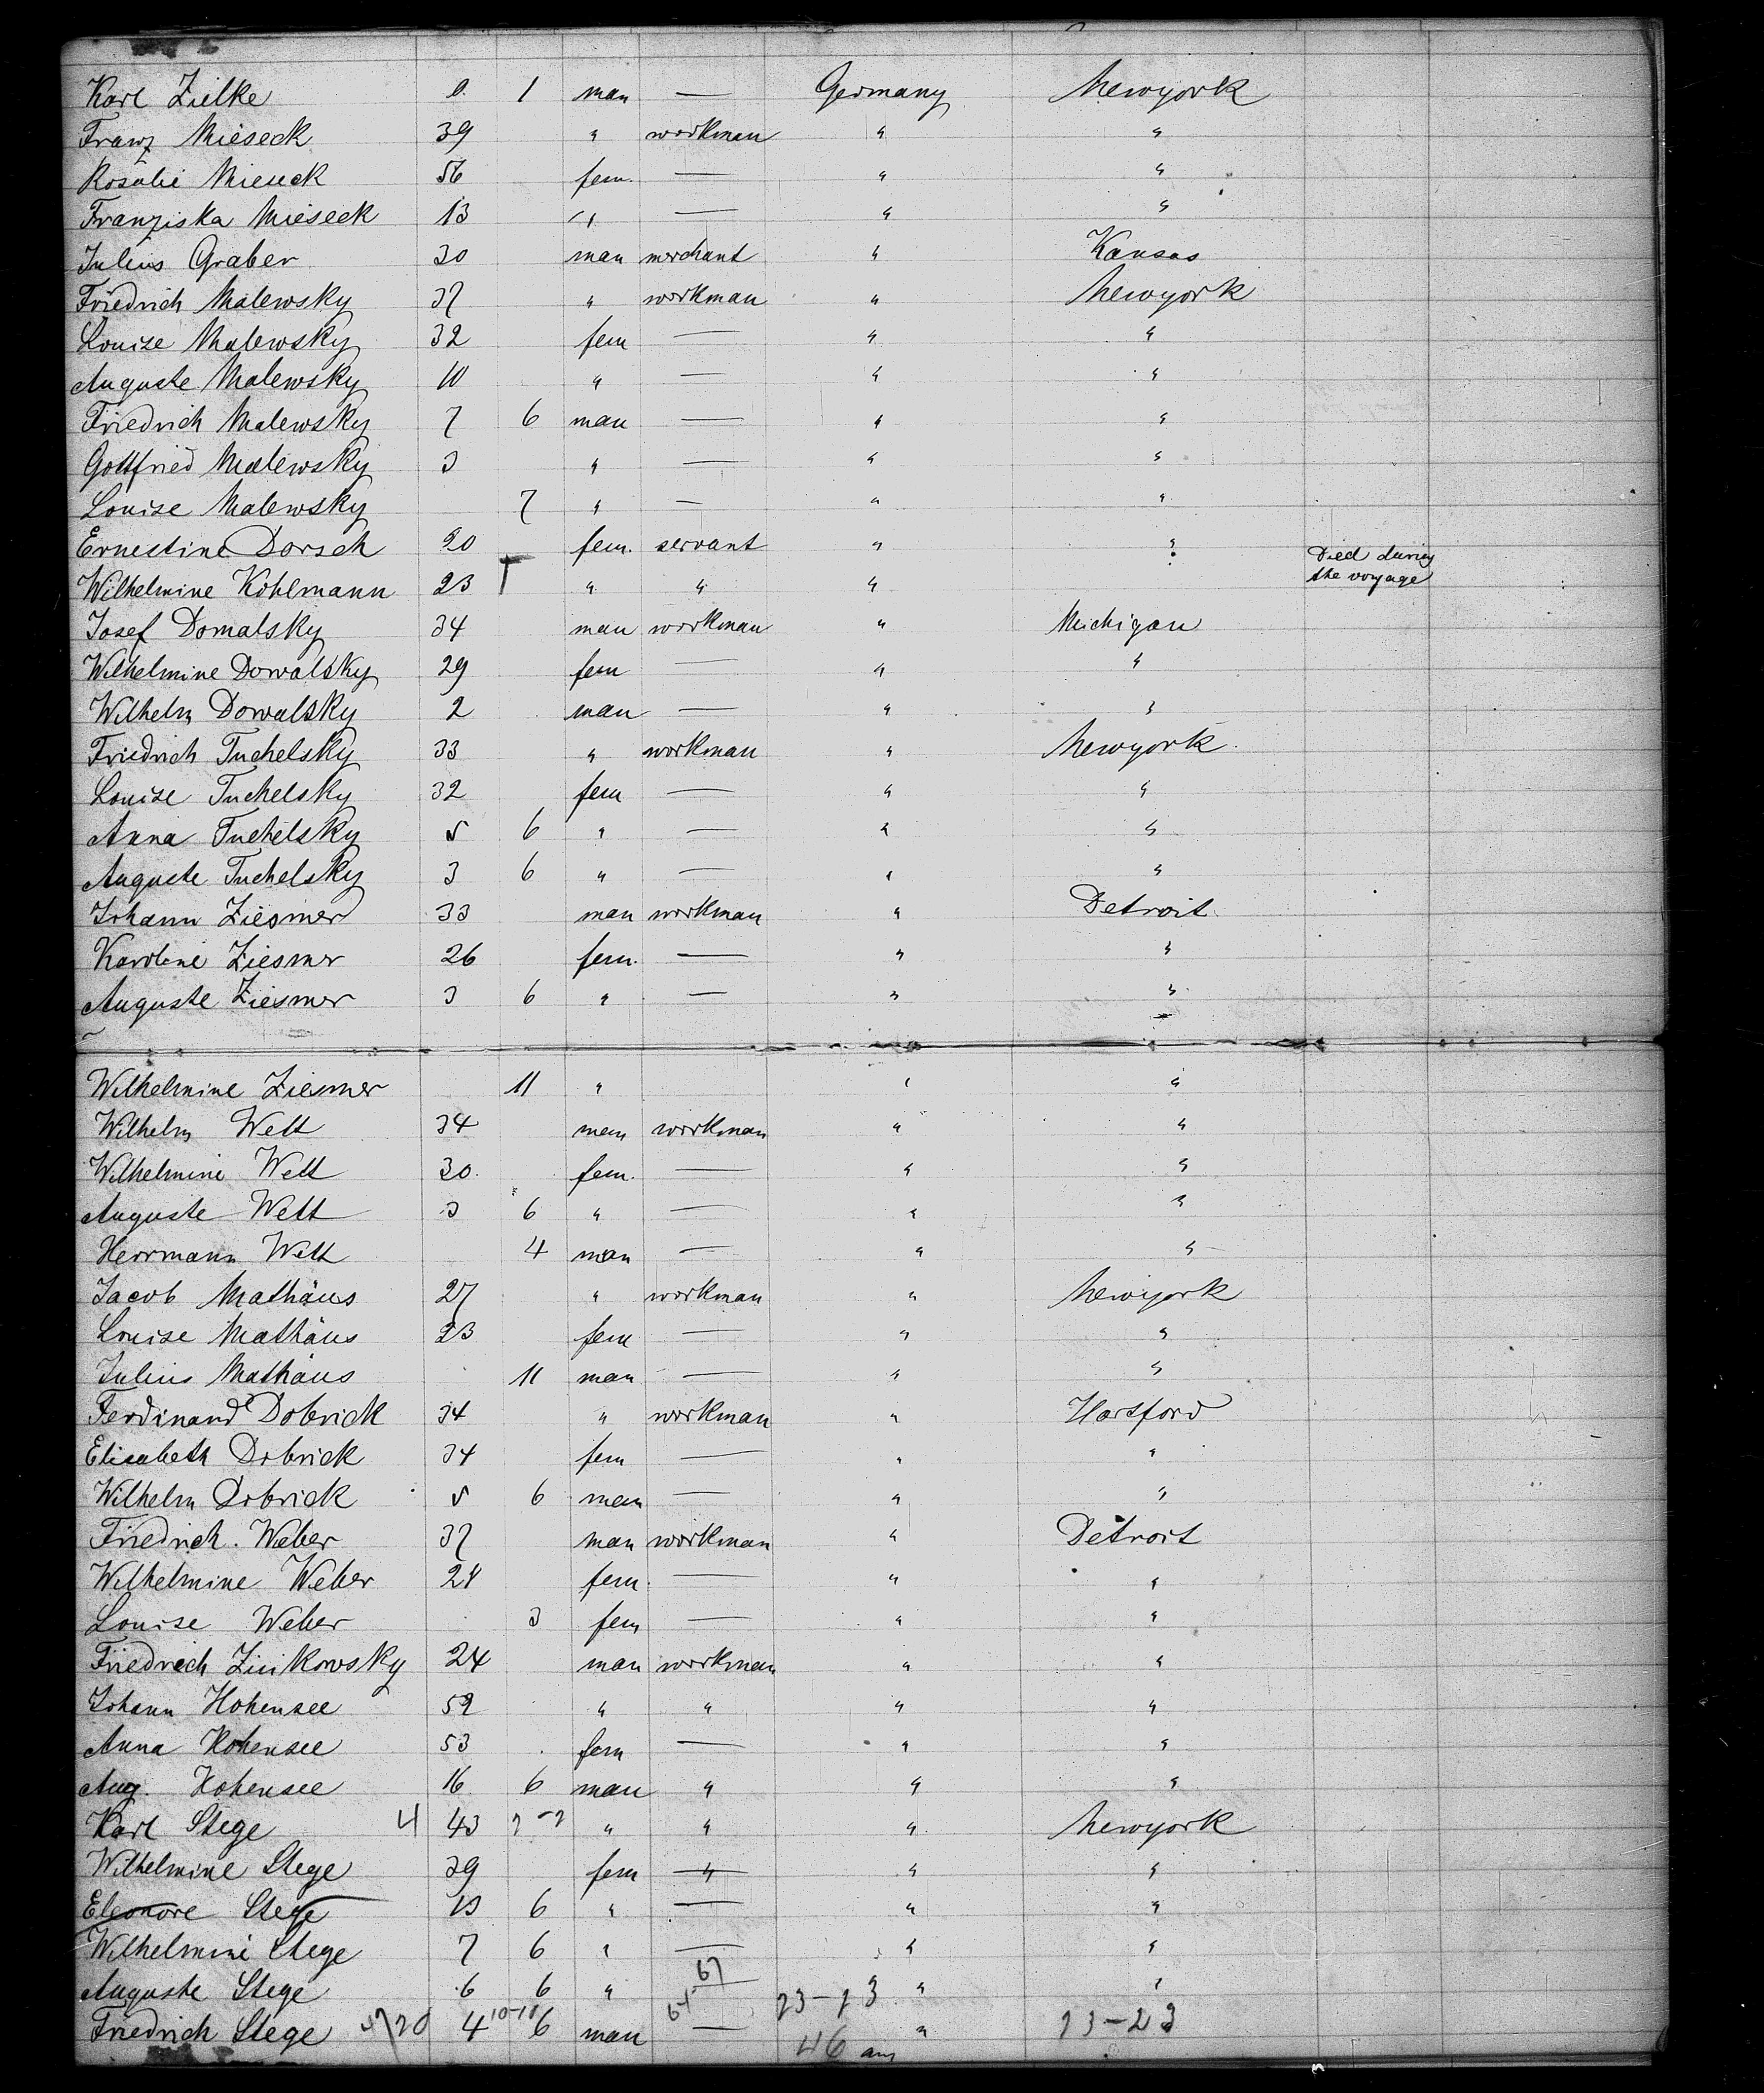 Karl Zielke 0. 1 man — Germany Newyork
Franz Mieseck 39 " workman " "
Rosalie Mieseck 56 fem. — " "
Franziska Mieseck 13 " — " "
Julius Graber 30 man merchant " Kansas
Friedrich Malewsky 37 " workman " Newyork
Louise Malewsky 32 fem — " "
Auguste Malewsky 10 " — " "
Friedrich Malewsky 7 6 man — " "
Gottfried Malewsky 3 " — " "
Louise Malewsky 7 " — " "
Ernestine Dorsch 20 fem. servant " "
Wilhelmine Kohlmann 23 † " " " Died during the voyage
Josef Domalsky 34 man workman " Michigan
Wilhelmine Dowalsky 29 fem — " "
Wilhelm Dowalsky 2 man — " "
Friedrich Tuchelsky 33 " workman " Newyork.
Louise Tuchelsky 32 fem — " "
Anna Tuchelsky 5 6 " — " "
Auguste Tuchelsky 3 6 " — " "
Johann Ziesmer 33 man workman " Detroit.
Karoline Ziesmer 26 fem. — " "
Auguste Ziesmer 3 6 " — " "
Wilhelmine Ziesmer 11 " " "
Wilhelm Wett 34 man workman " "
Wilhelmine Wett 30. fem. — " "
Auguste Wett 3 6 " — " "
Herrmann Wett 4 man — " "
Jacob Mathäus 27 " workman " Newyork
Louise Mathäus 23 fem — " "
Julius Mathäus 11 man — " "
Ferdinand Dobrick 34 " workman " Harsford
Elisabeth Dobrick 34 fem — " "
Wilhelm Dobrick 5 6 man — " "
Friedrich. Weber 37 man workman " Detroit
Wilhelmine Weber 24 fem. — " "
Louise Weber 3 fem — " "
Friedrich Zinkowsky 24 man workman " "
Johann Hohensee 52 " " " "
Anna Hohensee 53 fem — " "
Aug. Hohensee 16 6 man " " "
Karl Stege 4 43 " " " Newyork
Wilhelmine Stege 39 fem " " "
Eleonore Stege 13 6 " — " "
Wilhelmine Stege 7 6 " — " "
Auguste Stege 6 6 " — 67 "  "
Friedrich Stege 20 4 10-11 6 man — "
46